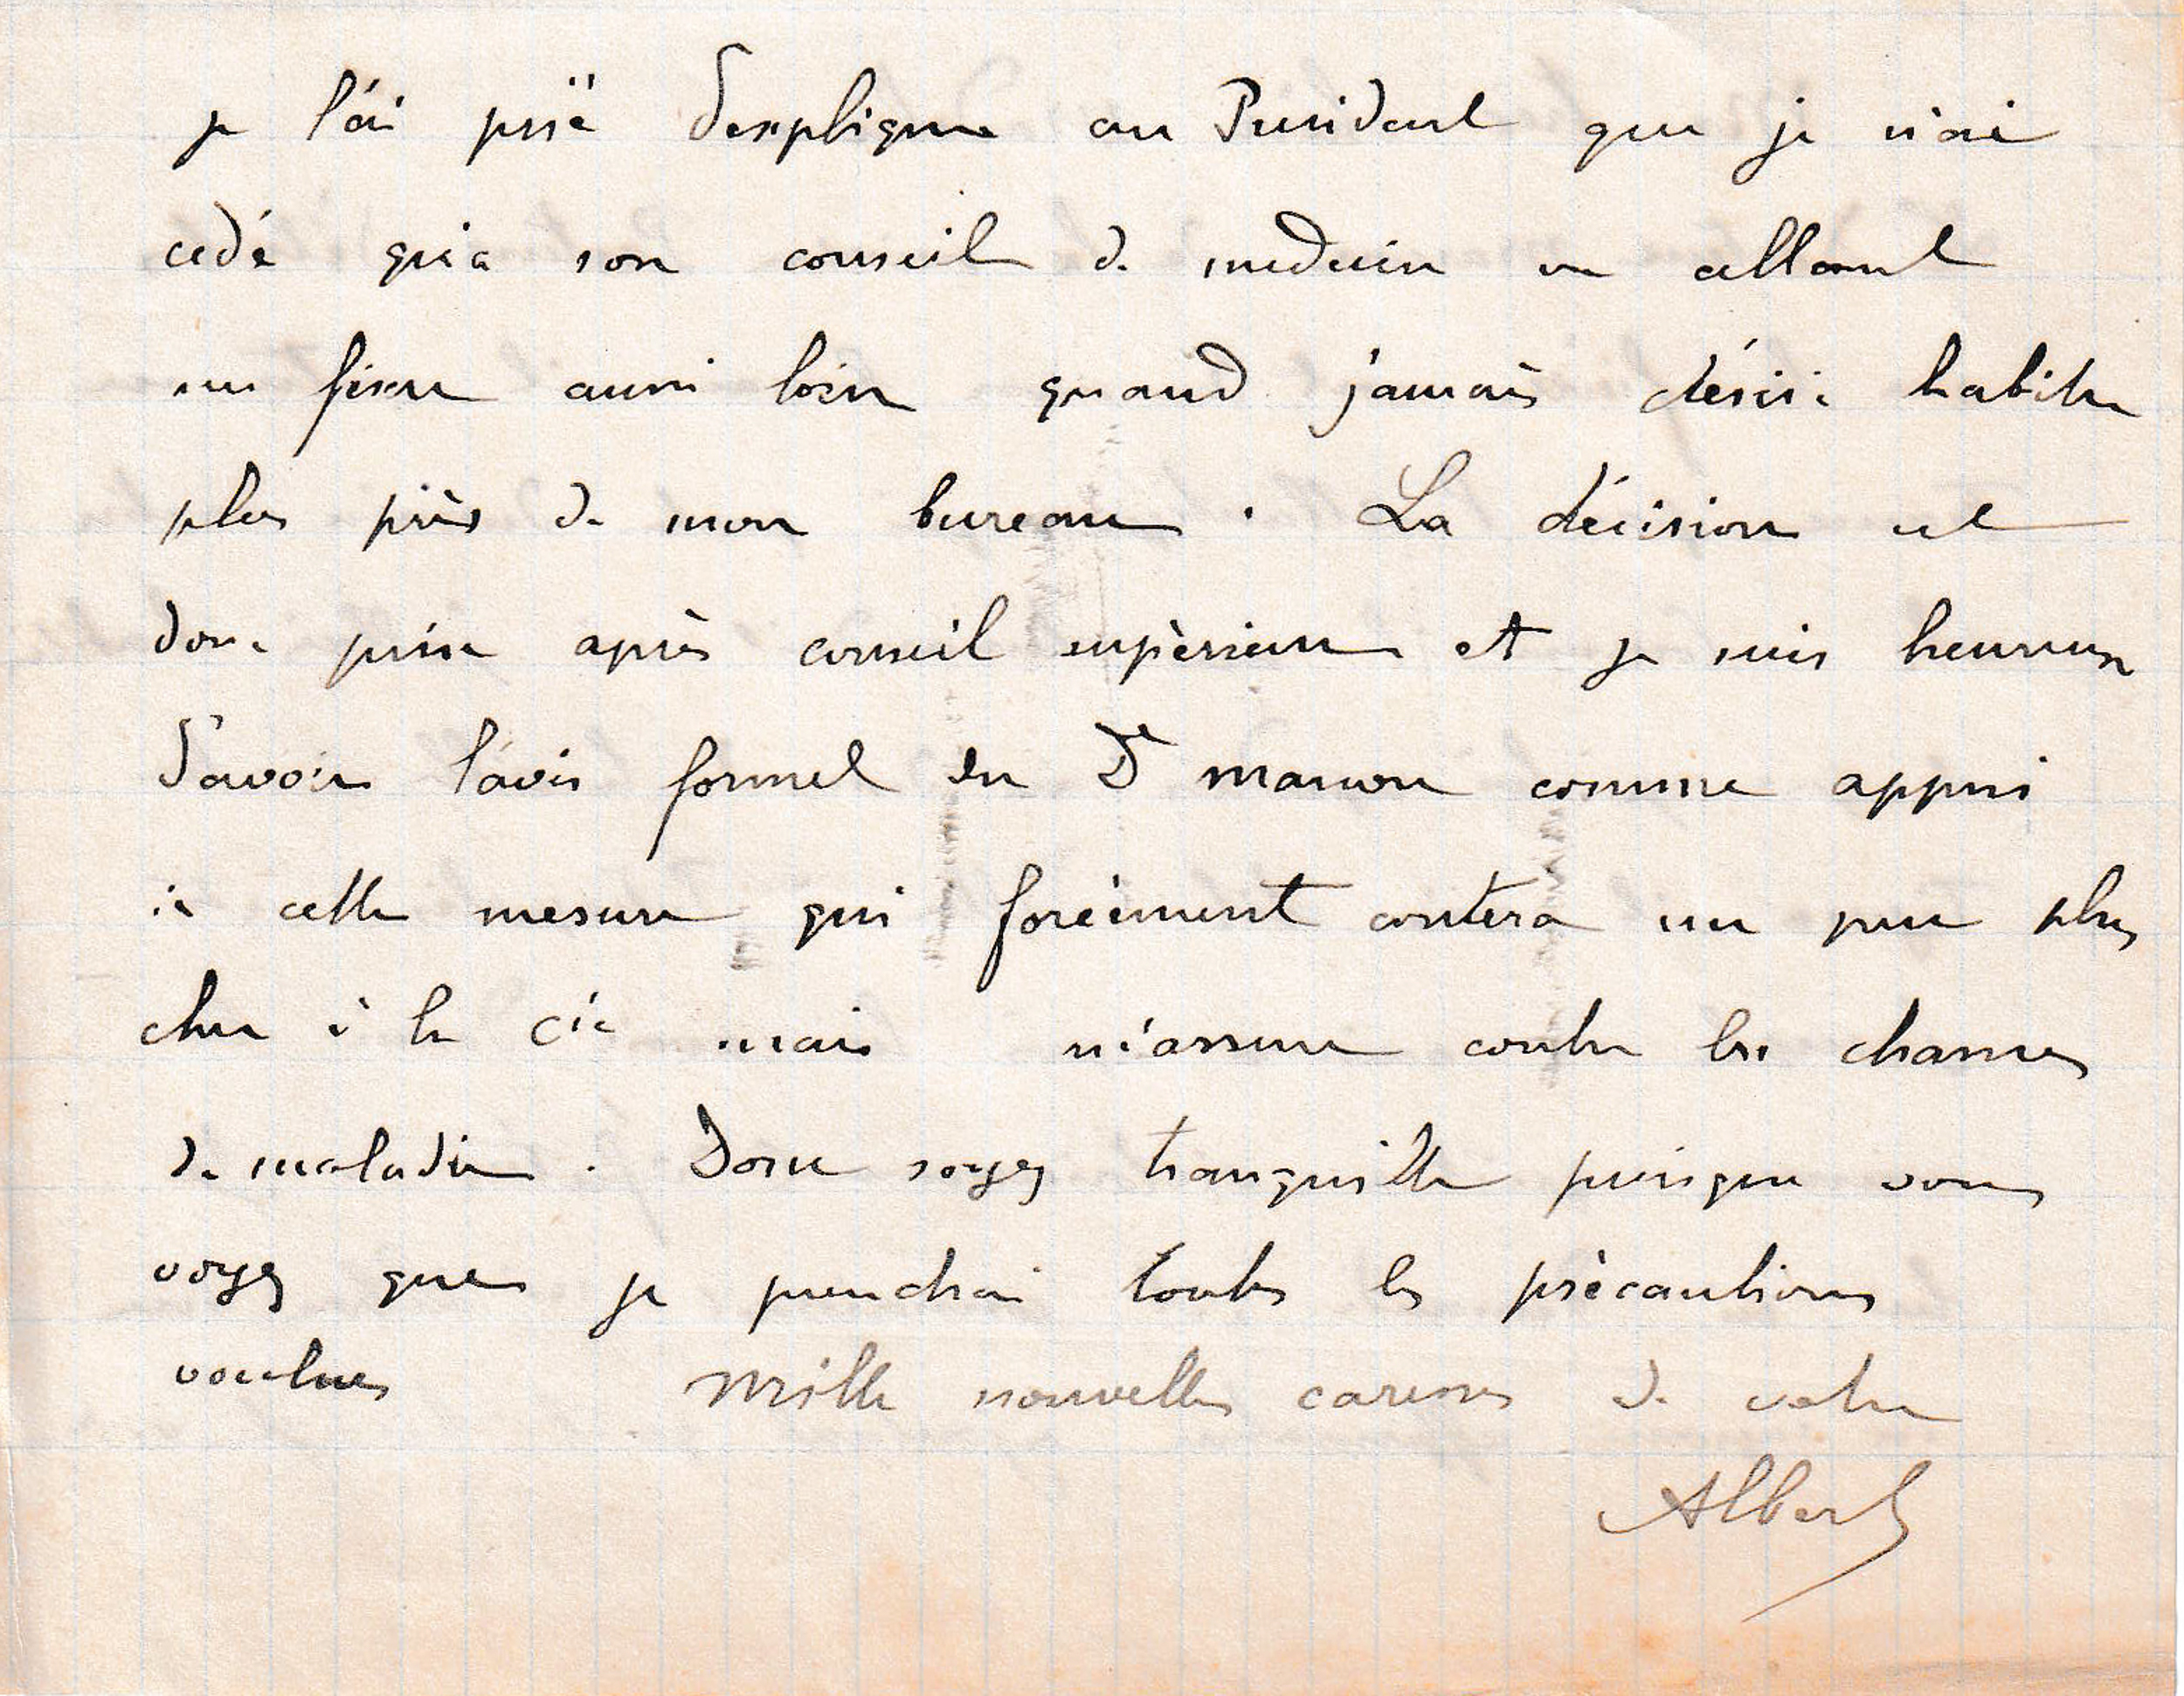 je l'ai prié d'expliquer au President que je n'ai
cedé qu'a son conseil de medecin en allant
me fixer aussi loin quand j'aurais désiré habiter
plus près de mon bureau. La décision est
donc prise après conseil supèrieur et je suis heureux
d'avoir l'avis formel du Dr comme appui
à cette mesure qui forcément coutera un peu plus
cher à la Cie mais m'assure contre les chances
de maladie. Donc soyez tranquille puisque vous
voyez que je prendrai toutes les prècautions
voulues Mille nouvelles caresses de votre
Albert